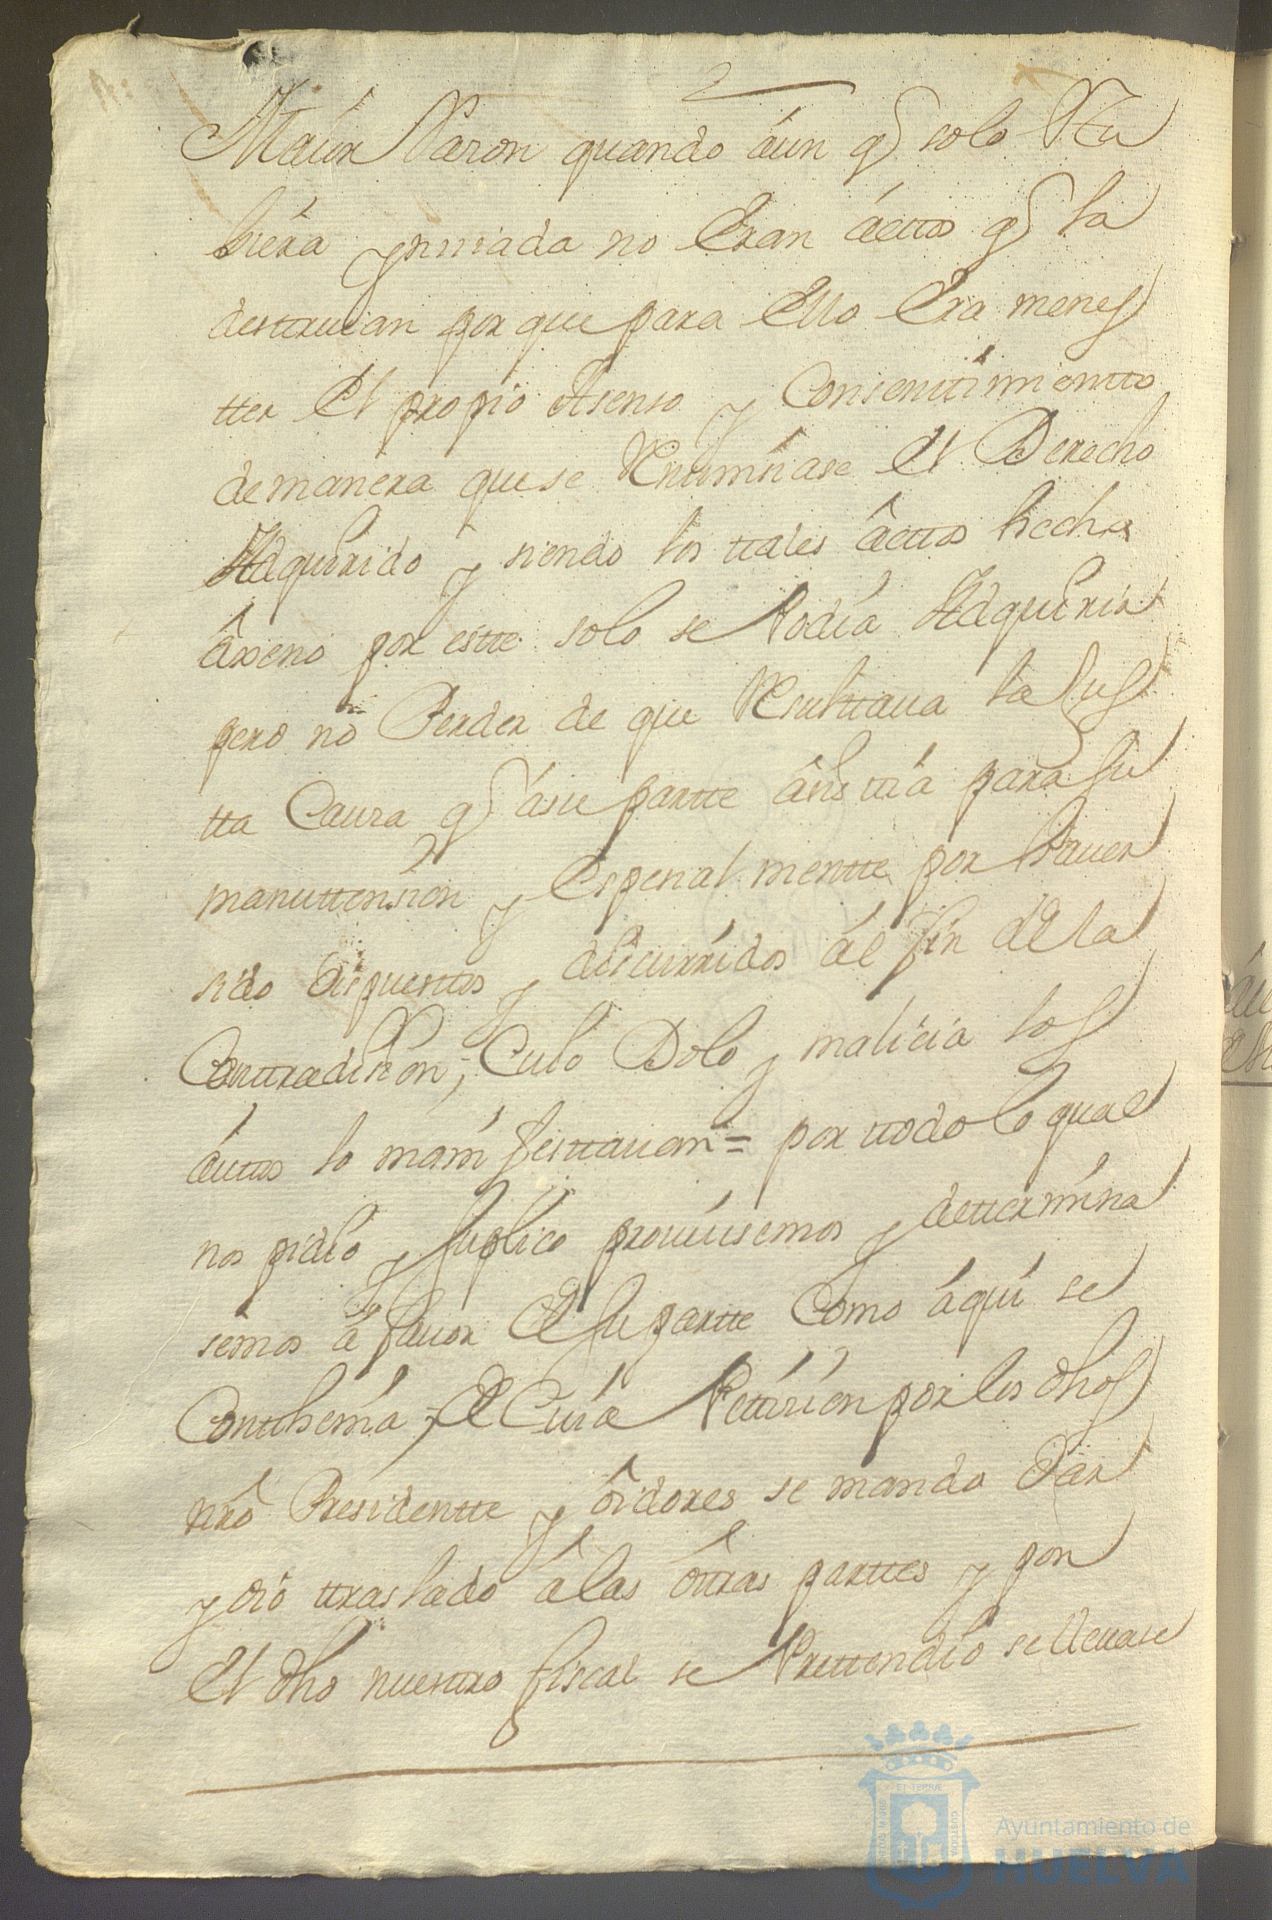 Maior Razon quando áun q̃ solo Stu
biera ynuiada no Eran áctos q̃ la
destruian por que para Ello Era menes
tter El propio Asenso y Consenttimientto
de manera que se Renunciase El Derecho
Adquirido y siendo los ttales âcttos hechos
âxeno por estte solo se Podia Adquirir
pero no Perder de que Resulttaua la Jus
tta Caussa q̃ ásu partte ásisttiá para su
manuttension y Espesialmentte por hauer
sido dispuesttos y discurridos ál fin de la
Conttradision, Cuio Dolo y malicia los
áuttos lo manifesttauan = por ttodo lo qual
nos pidio y suplico proueiesemos y dettermina
semos á fauor de su partte Como áqui se
Conthenia; de Cuia Pettision por los dhos
nro Presidentte y ôidores se mando Dar
y dio ttraslado â las ôttras parttes y por
El dho nuestro fiscal se Prettendio se lleuase
Ayuntamiento de
HUELVA